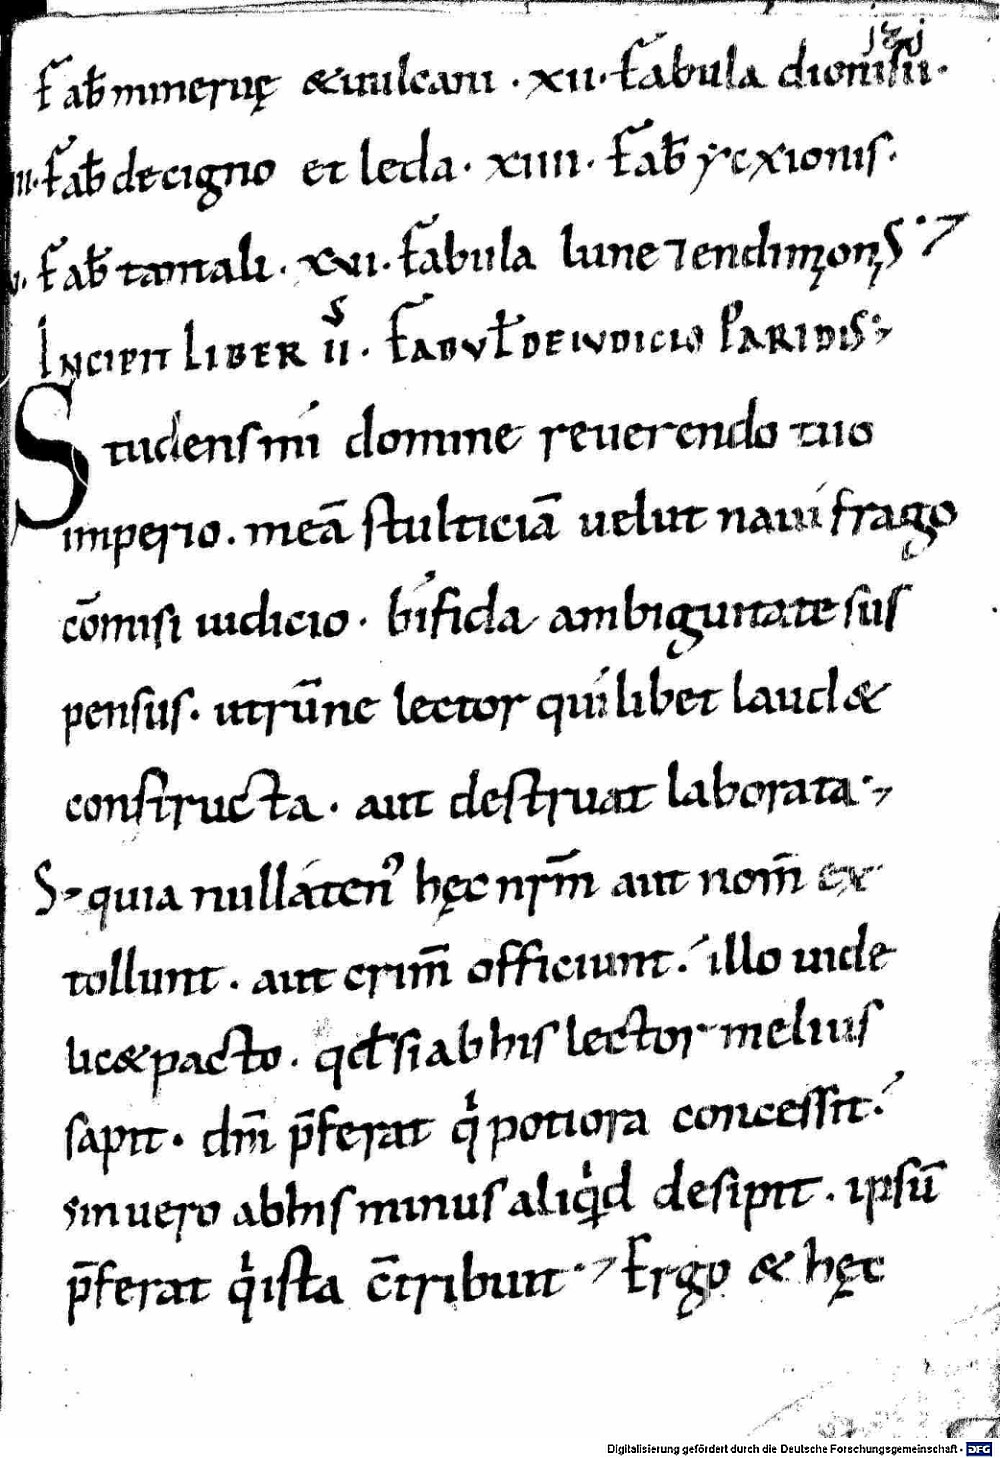 Fab̄ mineruę &uulcani · xii · Fabula dionisii ·
iii · Fab̄ decigno et leda · xiiii · Fab̄ ycxionis ·
v · Fab̄ tantali · xvi · Fabula lune ⁊ endimionis
Incipit Liber ii · Fabul̄ de iudicio Paridis
Studens mi domine reuerendo tuo
imperio . meā stulticiā uelut naui frago
cōmisi iudicio · bifida ambiguitate sus
pensus · utrūne lector quilibet laud&
constructa · aut destruat laborata
S; quia nullaten⁹ hęc nr̄m aut nom̄ ex
tollunt . aut crim̄ officiunt . illo uide
lic& pacto . qđ si ab his lector melius
sapit . dm̄ p̄ferat qⁱ potiora concessit
sin uero ab his minus aliqⁱd desipit . ipsū
p̄ferat qⁱ ista c̄tribuit Ergo & hęc
Digitalisierung gefördert durch die Deutsche Forschungsgemeinschaft · DFG